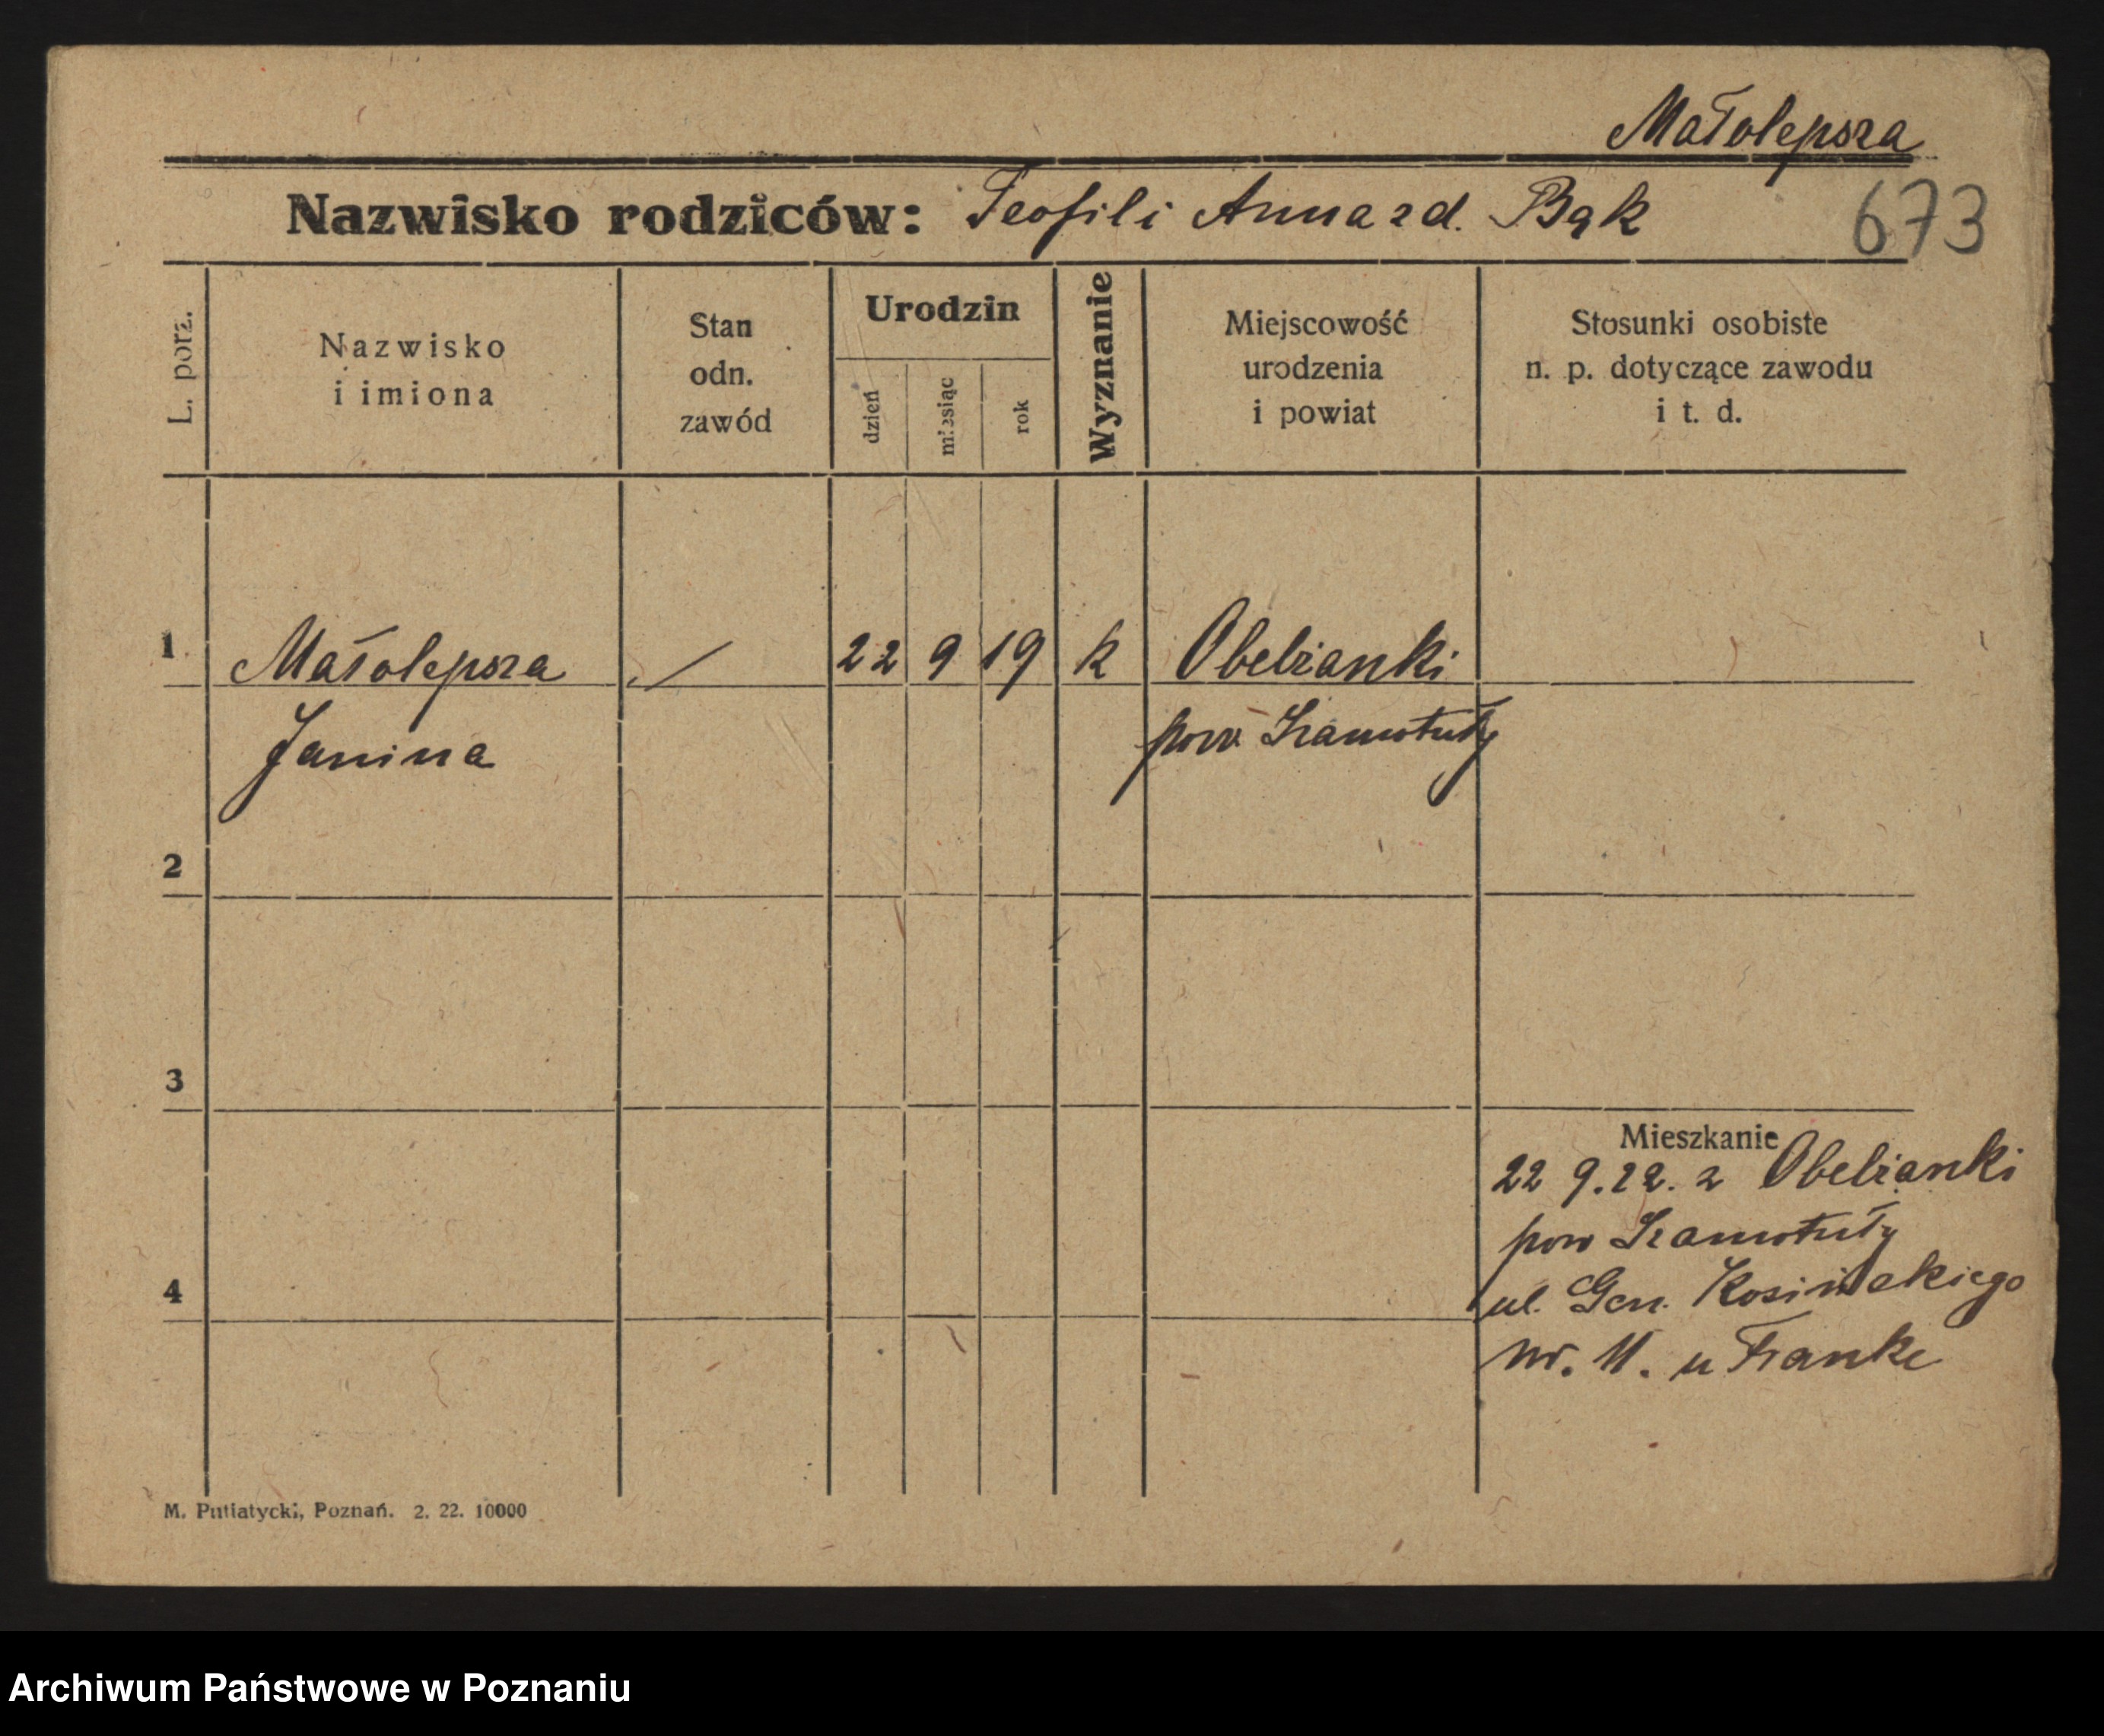 Małolepsza
Nazwisko rodziców: Teofil i Anna zd. Bąk
673
L. porz.
Nazwisko
i imiona
Stan
odn.
zawód
Urodzin
dzień
miesiąc
rok
Wyznanie
Miejscowość
urodzenia
i powiat
Stosunki osobiste
n. p. dotyczące zawodu
i t. d.
1 Małolepsza / 22 9 19 k Obelzanki
Janina pow. Szamotuły
2
3
Mieszkanie
22 9.22. z Obelzanki
pow Szamotuły
4
ul. Gen. Kosińskiego
nr. 11. u Franke
M. Putiatycki, Poznań. 2. 22. 10000
Archiwum Państwowe w Poznaniu